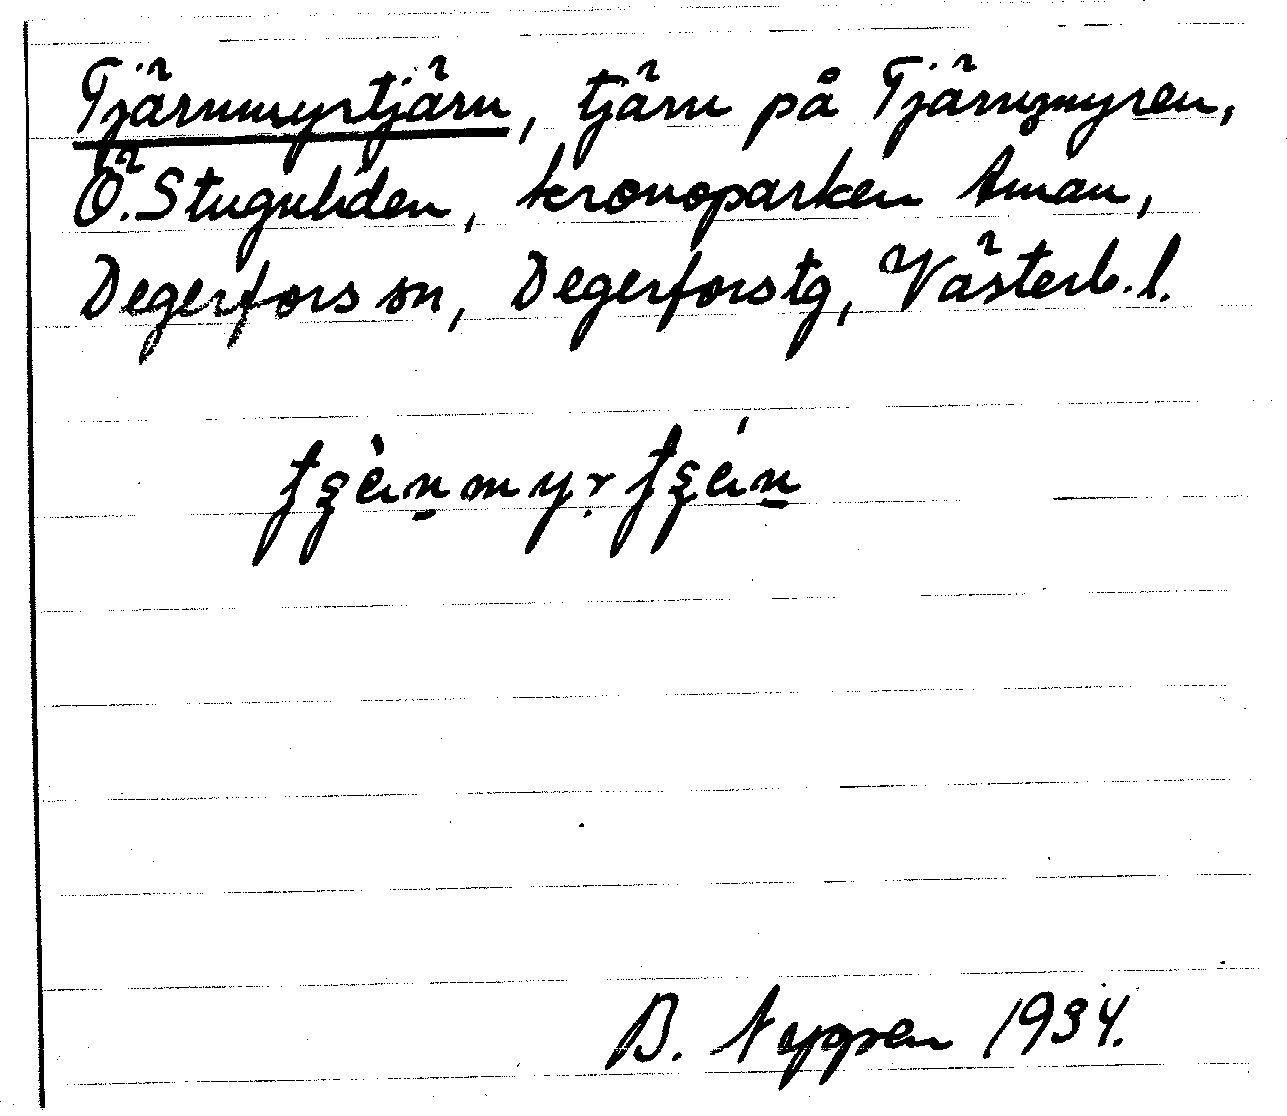 Tjärnmyrtjärn, tjärn på Tjärnmyren,
Ö. Stuguliden, kronoparken Åman,
Degerfors sn, Degerfors tg, Västerb. l.
B. Nygren 1934.